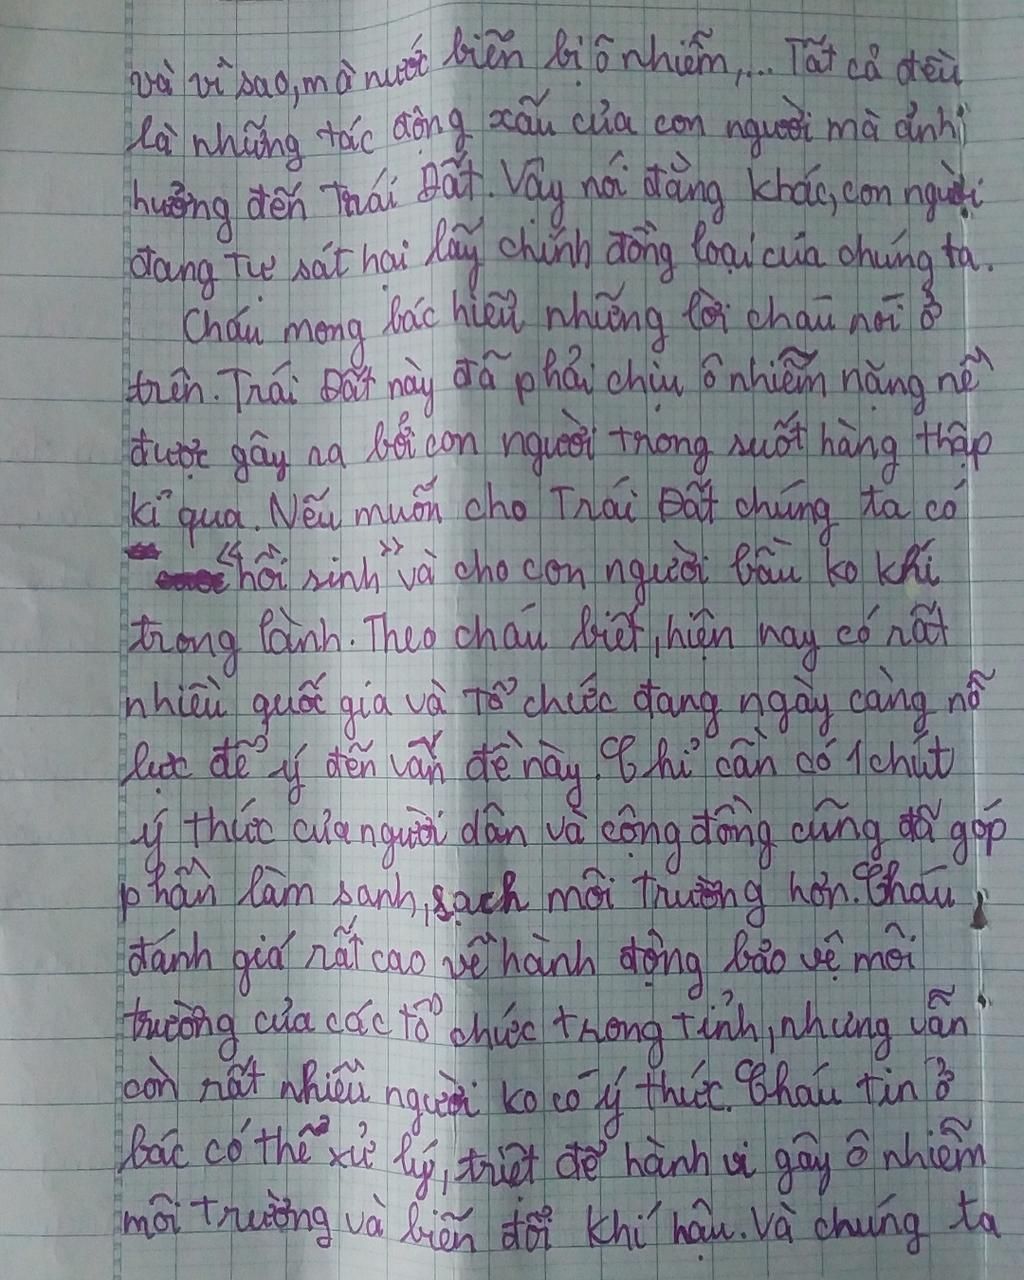 và vì sao, mà nước biển bị ô nhiễm,... Tất cả đều
là những tác động xấu của con người mà ảnh
hưởng đến Trái Đất. Vậy nói đằng khác, con người
đang tự sát hại lẫy chính đồng loại của chúng ta.
Cháu mong bác hiểu những lời cháu nói ở
trên. Trái Đất này đã phải chịu ô nhiễm nặng nề
được gây ra bởi con người trong suốt hàng thập
kỉ qua. Nếu muốn cho Trái Đất chúng ta có
"hồi sinh" và cho con người bầu ko khí
trong lành. Theo cháu biết, hiện nay có rất
nhiều quốc gia và Tổ chức đang ngày càng nỗ
lực để ý đến vấn đề này. Chỉ cần có 1 chút
ý thức của người dân và cộng đồng cũng đã góp
phần làm sanh, sạch môi trường hơn. Cháu
đánh giá rất cao về hành động bảo vệ môi
trường của các tổ chức trong tỉnh, nhưng vẫn
còn rất nhiều người ko có ý thức. Cháu tin ở
bác có thể xử lý, triệt để hành vi gây ô nhiễm
môi trường và biến đổi khí hậu. Và chúng ta